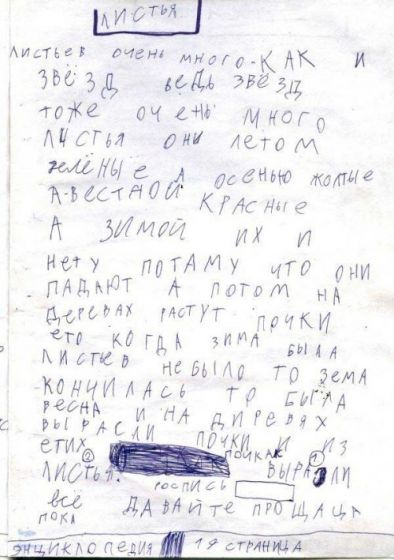 ЛИСТЬЯ
ЛИСТЬЕВ ОЧЕНЬ МНОГО-КАК И
ЗВЁЗД ВЕДЬ ЗВЁЗД
ТОЖЕ ОЧЕНЬ МНОГО
ЛИСТЬЯ ОНИ ЛЕТОМ
ЗЕЛЁНЫЕ А ОСЕНЬЮ ЖОЛТЫЕ
А-ВЕСТНОЙ КРАСНЫЕ
А ЗИМОЙ ИХ И
НЕТУ ПОТАМУ ЧТО ОНИ
ПАДАЮТ А ПОТОМ НА
ДЕРЕВАХ РАСТУТ ПОЧКИ
ЕТО КОГДА ЗИМА БЫЛА
ЛИСТЬЕВ НЕБЫЛО ТО ЗЕМА
КОНЧИЛАСЬ ТО БЫЛА
ВЕСНА И НА ДИРЕВЯХ
ВЫРАСЛИ ПОЧКИ И ИЗ
ЕТИХ ② ПОЧКАК ①
ЛИСТЬЯ. ВЫРАЛИ
РОСПИСЬ
ВСЁ ДАВАЙТЕ ПРОЩАЦА
ПОКА
ЭНЦИКЛОПЕДИЯ 19 СТРАНИЦА